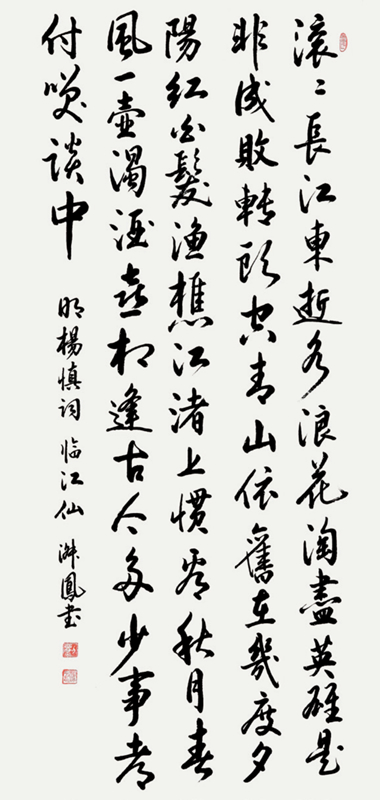 滚〻長江東逝水浪花淘盡英雄是
非成敗轉頭空青山依舊在幾度夕
陽紅白髮漁樵江渚上慣看秋月春
風一壺濁酒喜相逢古今多少事都
付咲談中
明楊慎詞临江仙 鳳書